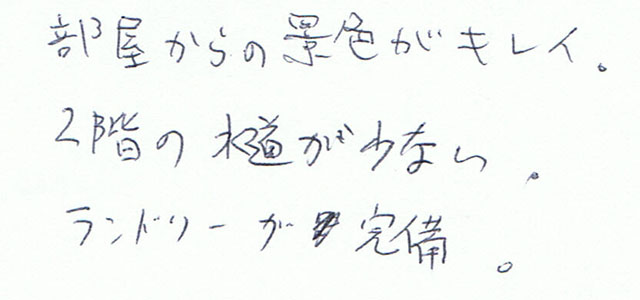 部屋からの景色がキレイ。
2階の水道が少ない。
ランドリーが完備。